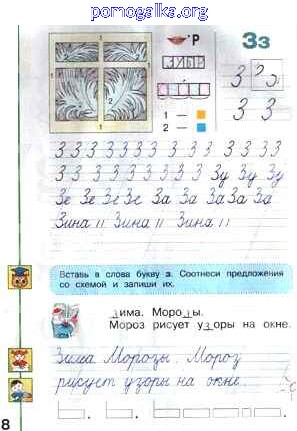 pomogalka.org
Р
Зз
1
2
1
2
З З З
З З
1 —
2 —
З З З З З З З З З З З З
З З З З З З З З Зу Зу Зу
Зе Зе Зе Зе За За За За За
Зина Зина Зина
Вставь в слова букву з. Соотнеси предложения
со схемой и запиши их.
зима. Морозы.
Мороз рисует узоры на окне.
Зима. Морозы. Мороз
рисует узоры на окне.
8